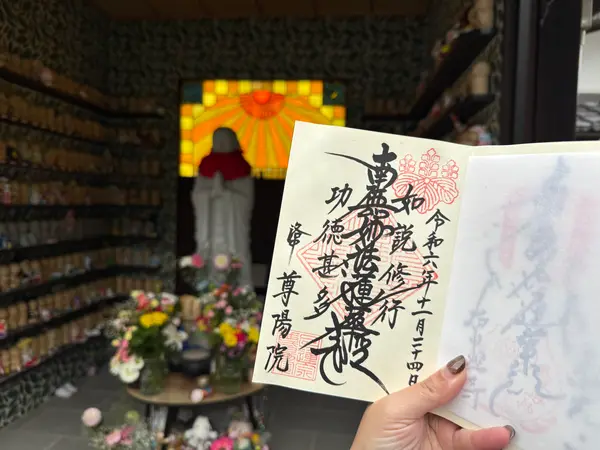 令和六年十一月二十四日
如説修行
南無妙法蓮華経
功徳甚多
峰 尊陽院